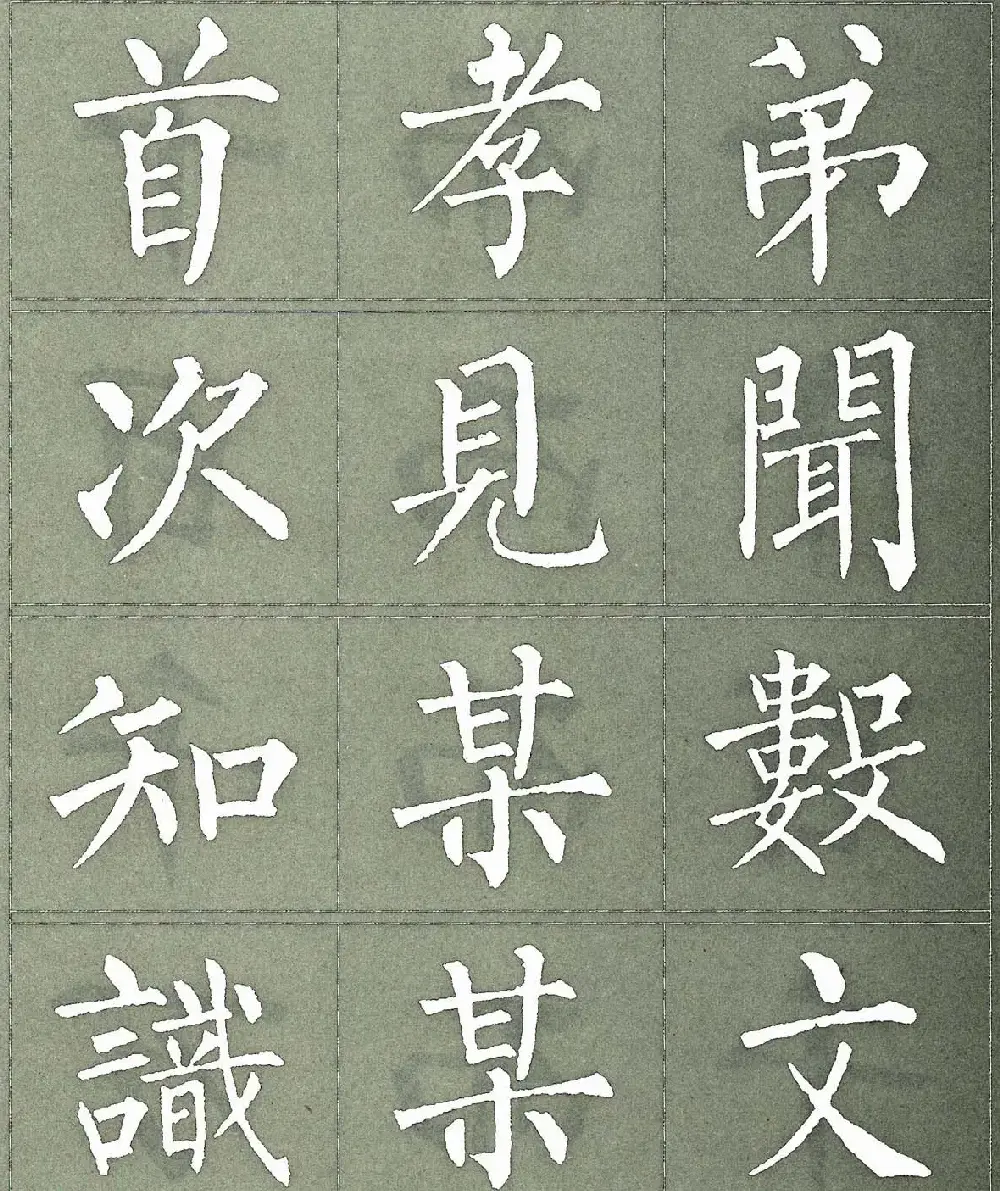 首孝弟
次見聞
知某數
識某文